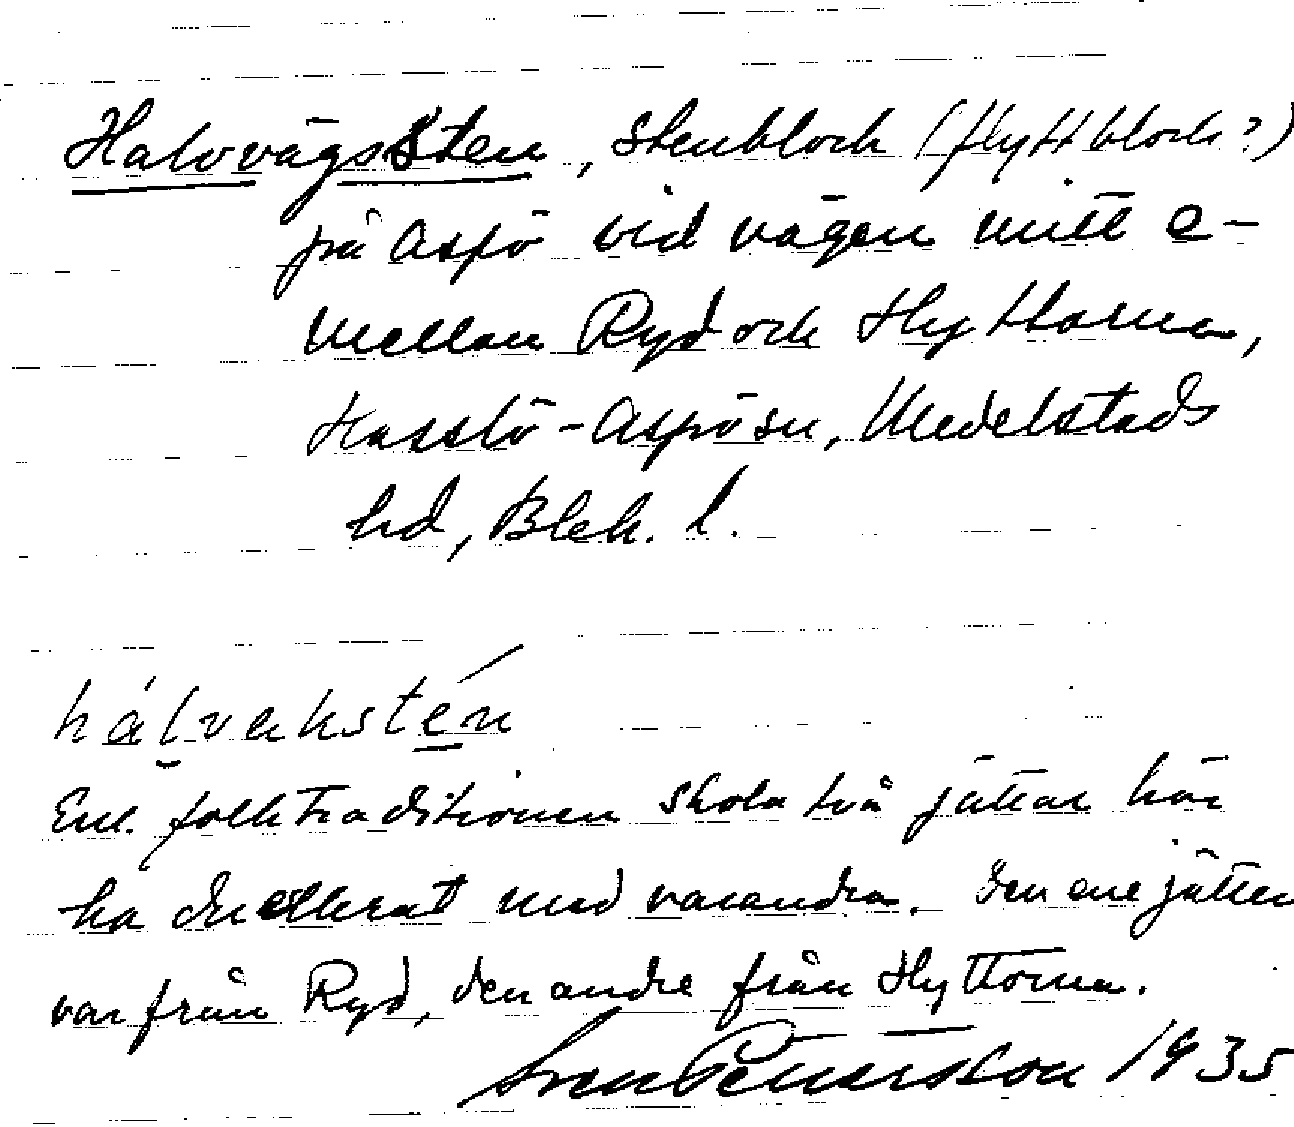 Halvvägssten, stenblock (flyttblock?)
på Aspö vid vägen mitt e-
mellan Ryd och Hyttorna,
Hasslö-Aspö sn, Medelstads
hd, Blek. l.
hálvakstén
Enl. folktraditionen skola två jättar här
ha duellerat med varandra. Den ene jätten
var från Ryd, den andre från Hyttorna.
Sven Petersson 1935